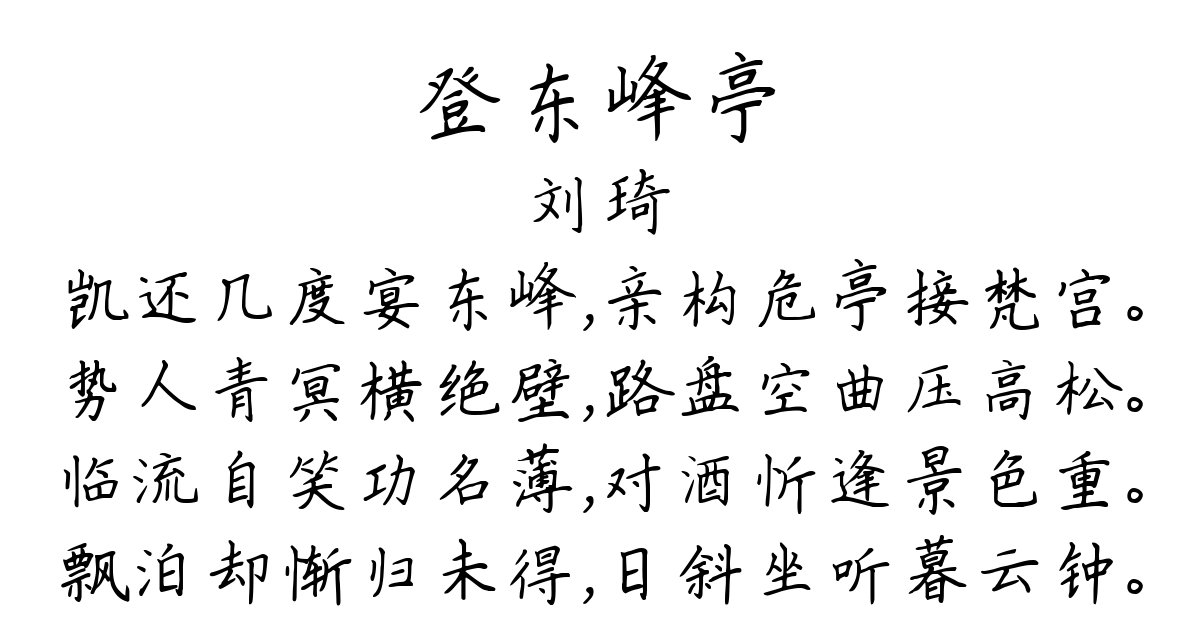 登东峰亭
刘琦
凯还几度宴东峰,亲构危亭接梵宫。
势人青冥横绝壁,路盘空曲压高松。
临流自笑功名薄,对酒忻逢景色重。
飘泊却惭归未得,日斜坐听暮云钟。